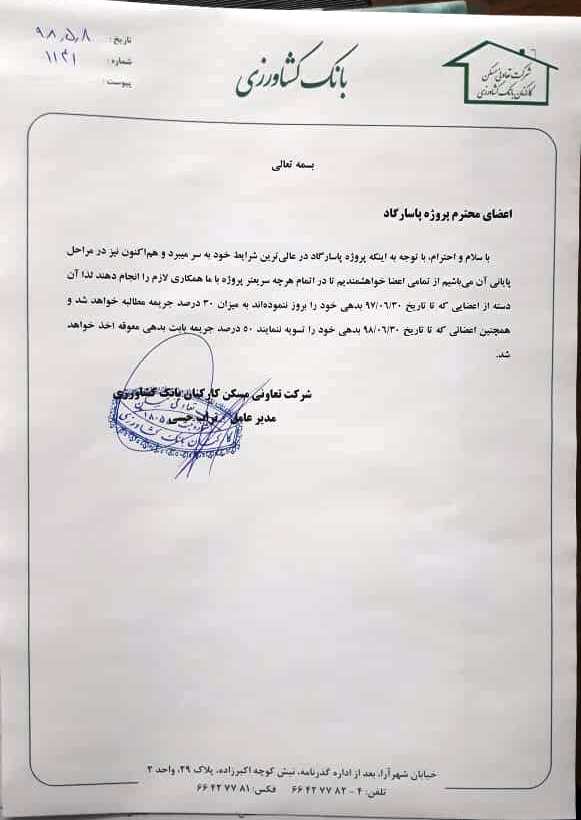 تاریخ: ۹۸،۵،۸
شماره: ۱۱۴۱
پیوست:
بانک کشاورزی
شرکت تعاونی مسکن
کارکنان بانک کشاورزی
بسمه تعالی
اعضای محترم پروژه پاسارگاد
با سلام و احترام، با توجه به اینکه پروژه پاسارگاد در عالی‌ترین شرایط خود به سر میبرد و هم‌اکنون نیز در مراحل
پایانی آن می‌باشیم از تمامی اعضا خواهشمندیم تا در اتمام هرچه سریعتر پروژه با ما همکاری لازم را انجام دهند لذا آن
دسته از اعضایی که تا تاریخ ۹۷/۰۶/۳۰ بدهی خود را بروز ننموده‌اند به میزان ۳۰ درصد جریمه مطالبه خواهد شد و
همچنین اعضائی که تا تاریخ ۹۸/۰۶/۳۰ بدهی خود را تسویه ننمایند ۵۰ درصد جریمه بابت بدهی معوقه اخذ خواهد
شد.
شرکت تعاونی مسکن کارکنان بانک کشاورزی
مدیر عامل
کارکنان بانک کشاورزی
خیابان شهرآرا، بعد از اداره گذرنامه، نبش کوچه اکبرزاده، پلاک ۲۹، واحد ۲
تلفن: ۴ - ۸۲ ۷۷ ۴۲ ۶۶ فکس: ۸۱ ۷۷ ۴۲ ۶۶